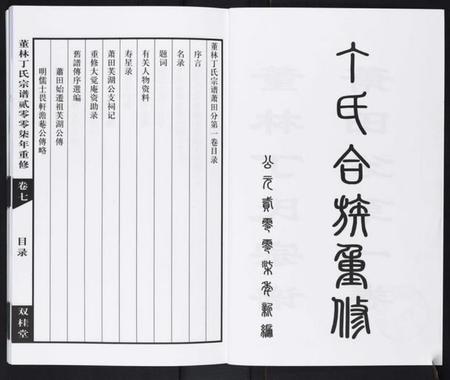 丁氏合族重修
公元貳零零柒年新編
董林丁氏宗谱蕭田分第一卷目录
序言
名录
题词
有关人物资料
寿星录
蕭田芙湖公支祠记
重修大觉庵资助录
舊譜傳序選編
蕭田始遷祖芙湖公傳
明儒士畏軒澹菴公傳略
董林丁氏宗谱貳零零柒年重修
卷七
目录
双桂堂